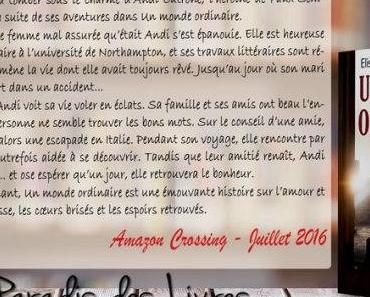 tomber sous le charme d'Andi
suite de ses aventures dans Un monde ordinaire.
e femme mal assurée qu'était Andi s'est épanouie. Elle est heureuse
aire à l'université de Northampton, et ses travaux littéraires sont ré-
mène la vie dont elle avait toujours rêvé. Jusqu'au jour où son mari
rt dans un accident...
Andi voit sa vie voler en éclats. Sa famille et ses amis ont beau l'en-
ersonne ne semble trouver les bons mots. Sur le conseil d'une amie,
alors une escapade en Italie. Pendant son voyage, elle rencontre par
utrefois aidée à se découvrir. Tandis que leur amitié renaît, Andi
... et ose espérer qu'un jour, elle retrouvera le bonheur.
ant, Un monde ordinaire est une émouvante histoire sur l'amour et
sse, les cœurs brisés et les espoirs retrouvés.
Amazon Crossing - Juillet 2016
Paradis des Livres
Elis
U
O